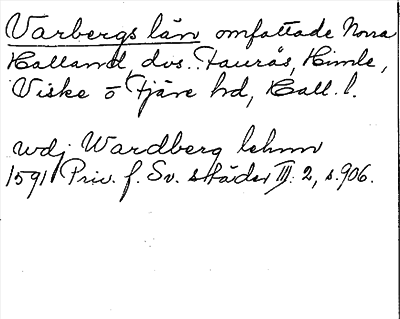 Varbergs län omfattade Norra
Halland, dvs. Faurås, Himle,
Viske o Fjäre hd, Hall. l.
wdj Wardberg lehnn
1591 Priv. f. Sv. städer III: 2, s. 906.